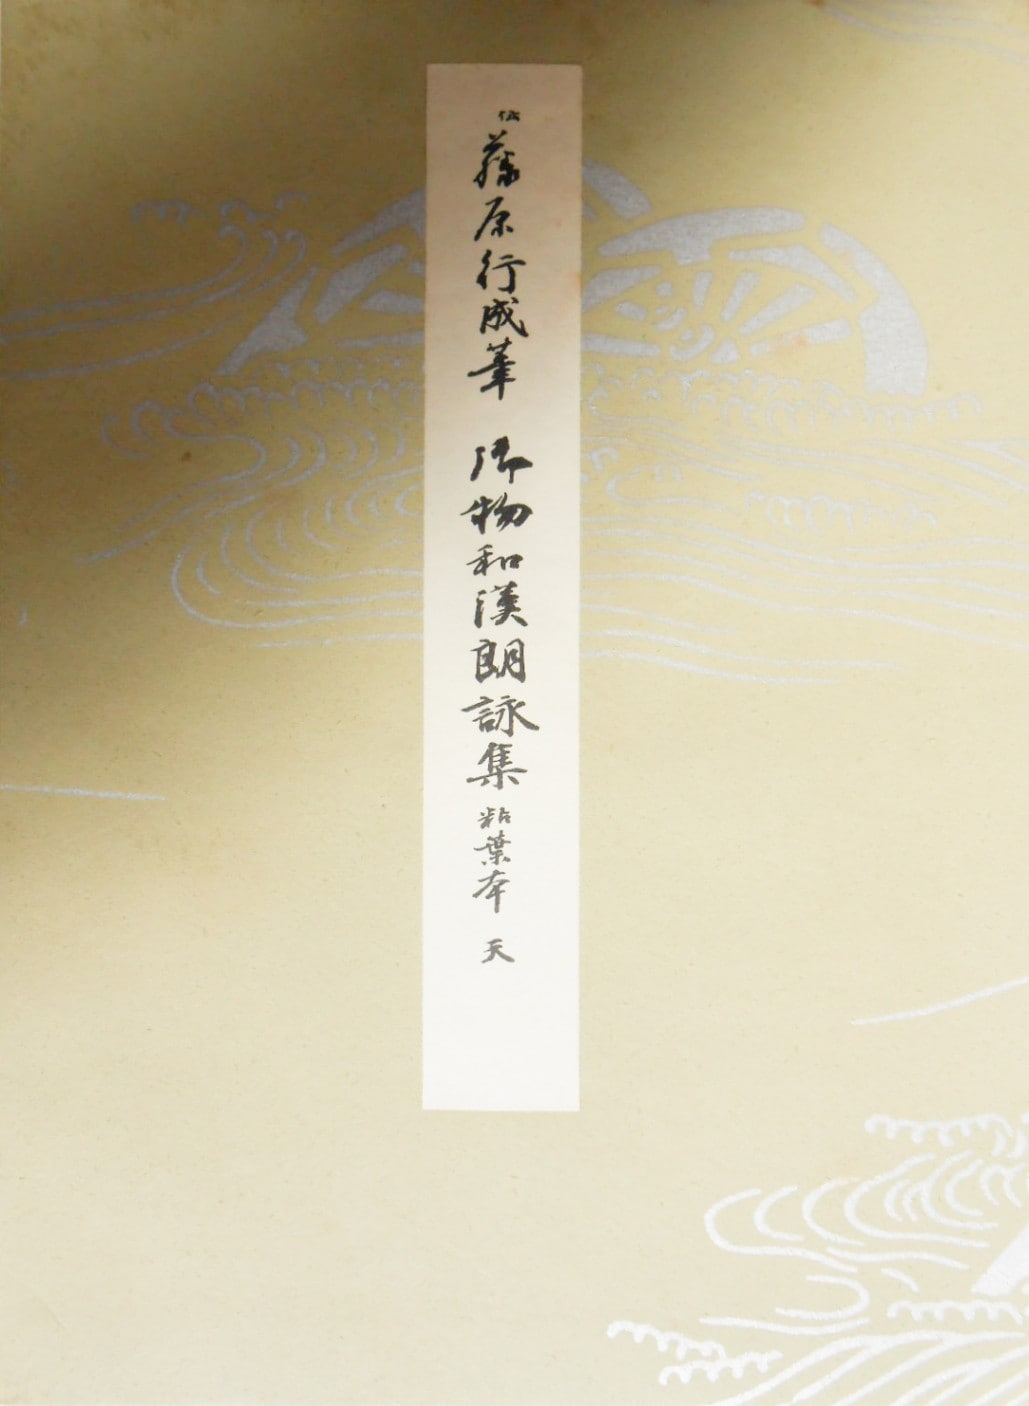 伝藤原行成筆 御物和漢朗詠集 粘葉本 天